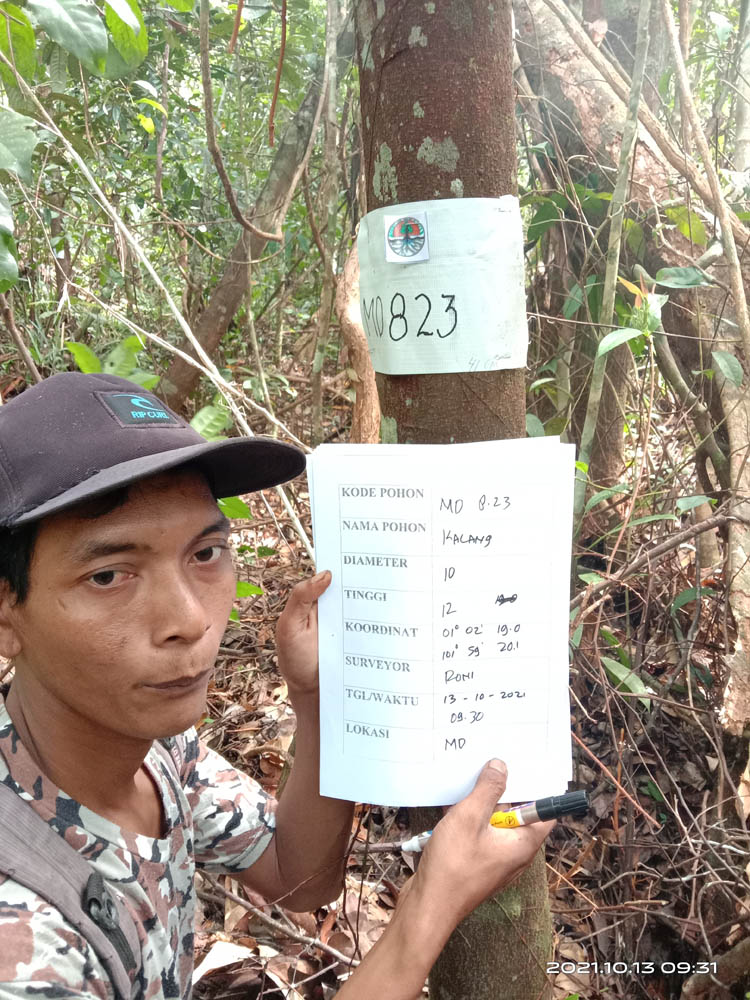 MD 823
RIP CURL
KODE POHON MD 8.23
NAMA POHON KALANG
DIAMETER 10
TINGGI 12
KOORDINAT 01° 02' 19.0
101° 59' 20.1
SURVEYOR RONI
TGL/WAKTU 13 - 10 - 2021
09.30
LOKASI MD
2021.10.13 09:31